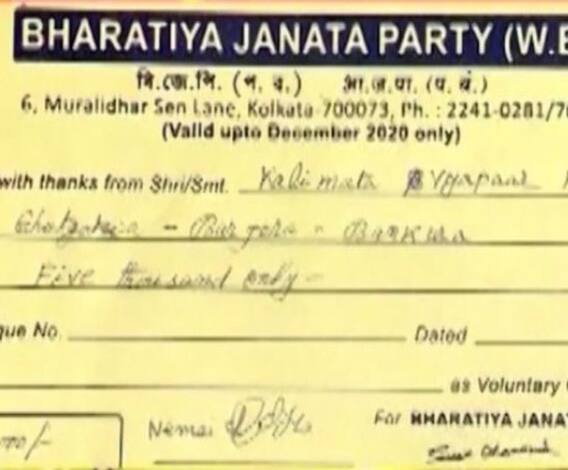 BHARATIYA JANATA PARTY (W.B
বি.জে.পি. (প. ব.) भा.ज.पा. (प. बं.)
6, Muralidhar Sen Lane, Kolkata-700073, Ph. : 2241-0281/70
(Valid upto December 2020 only)
with thanks from Shri/Smt. Kalimata Vyapaar
Barjora - Bankura
Five thousand only -
que No. Dated
as Voluntary
For BHARATIYA JANA
Nemai
000/-